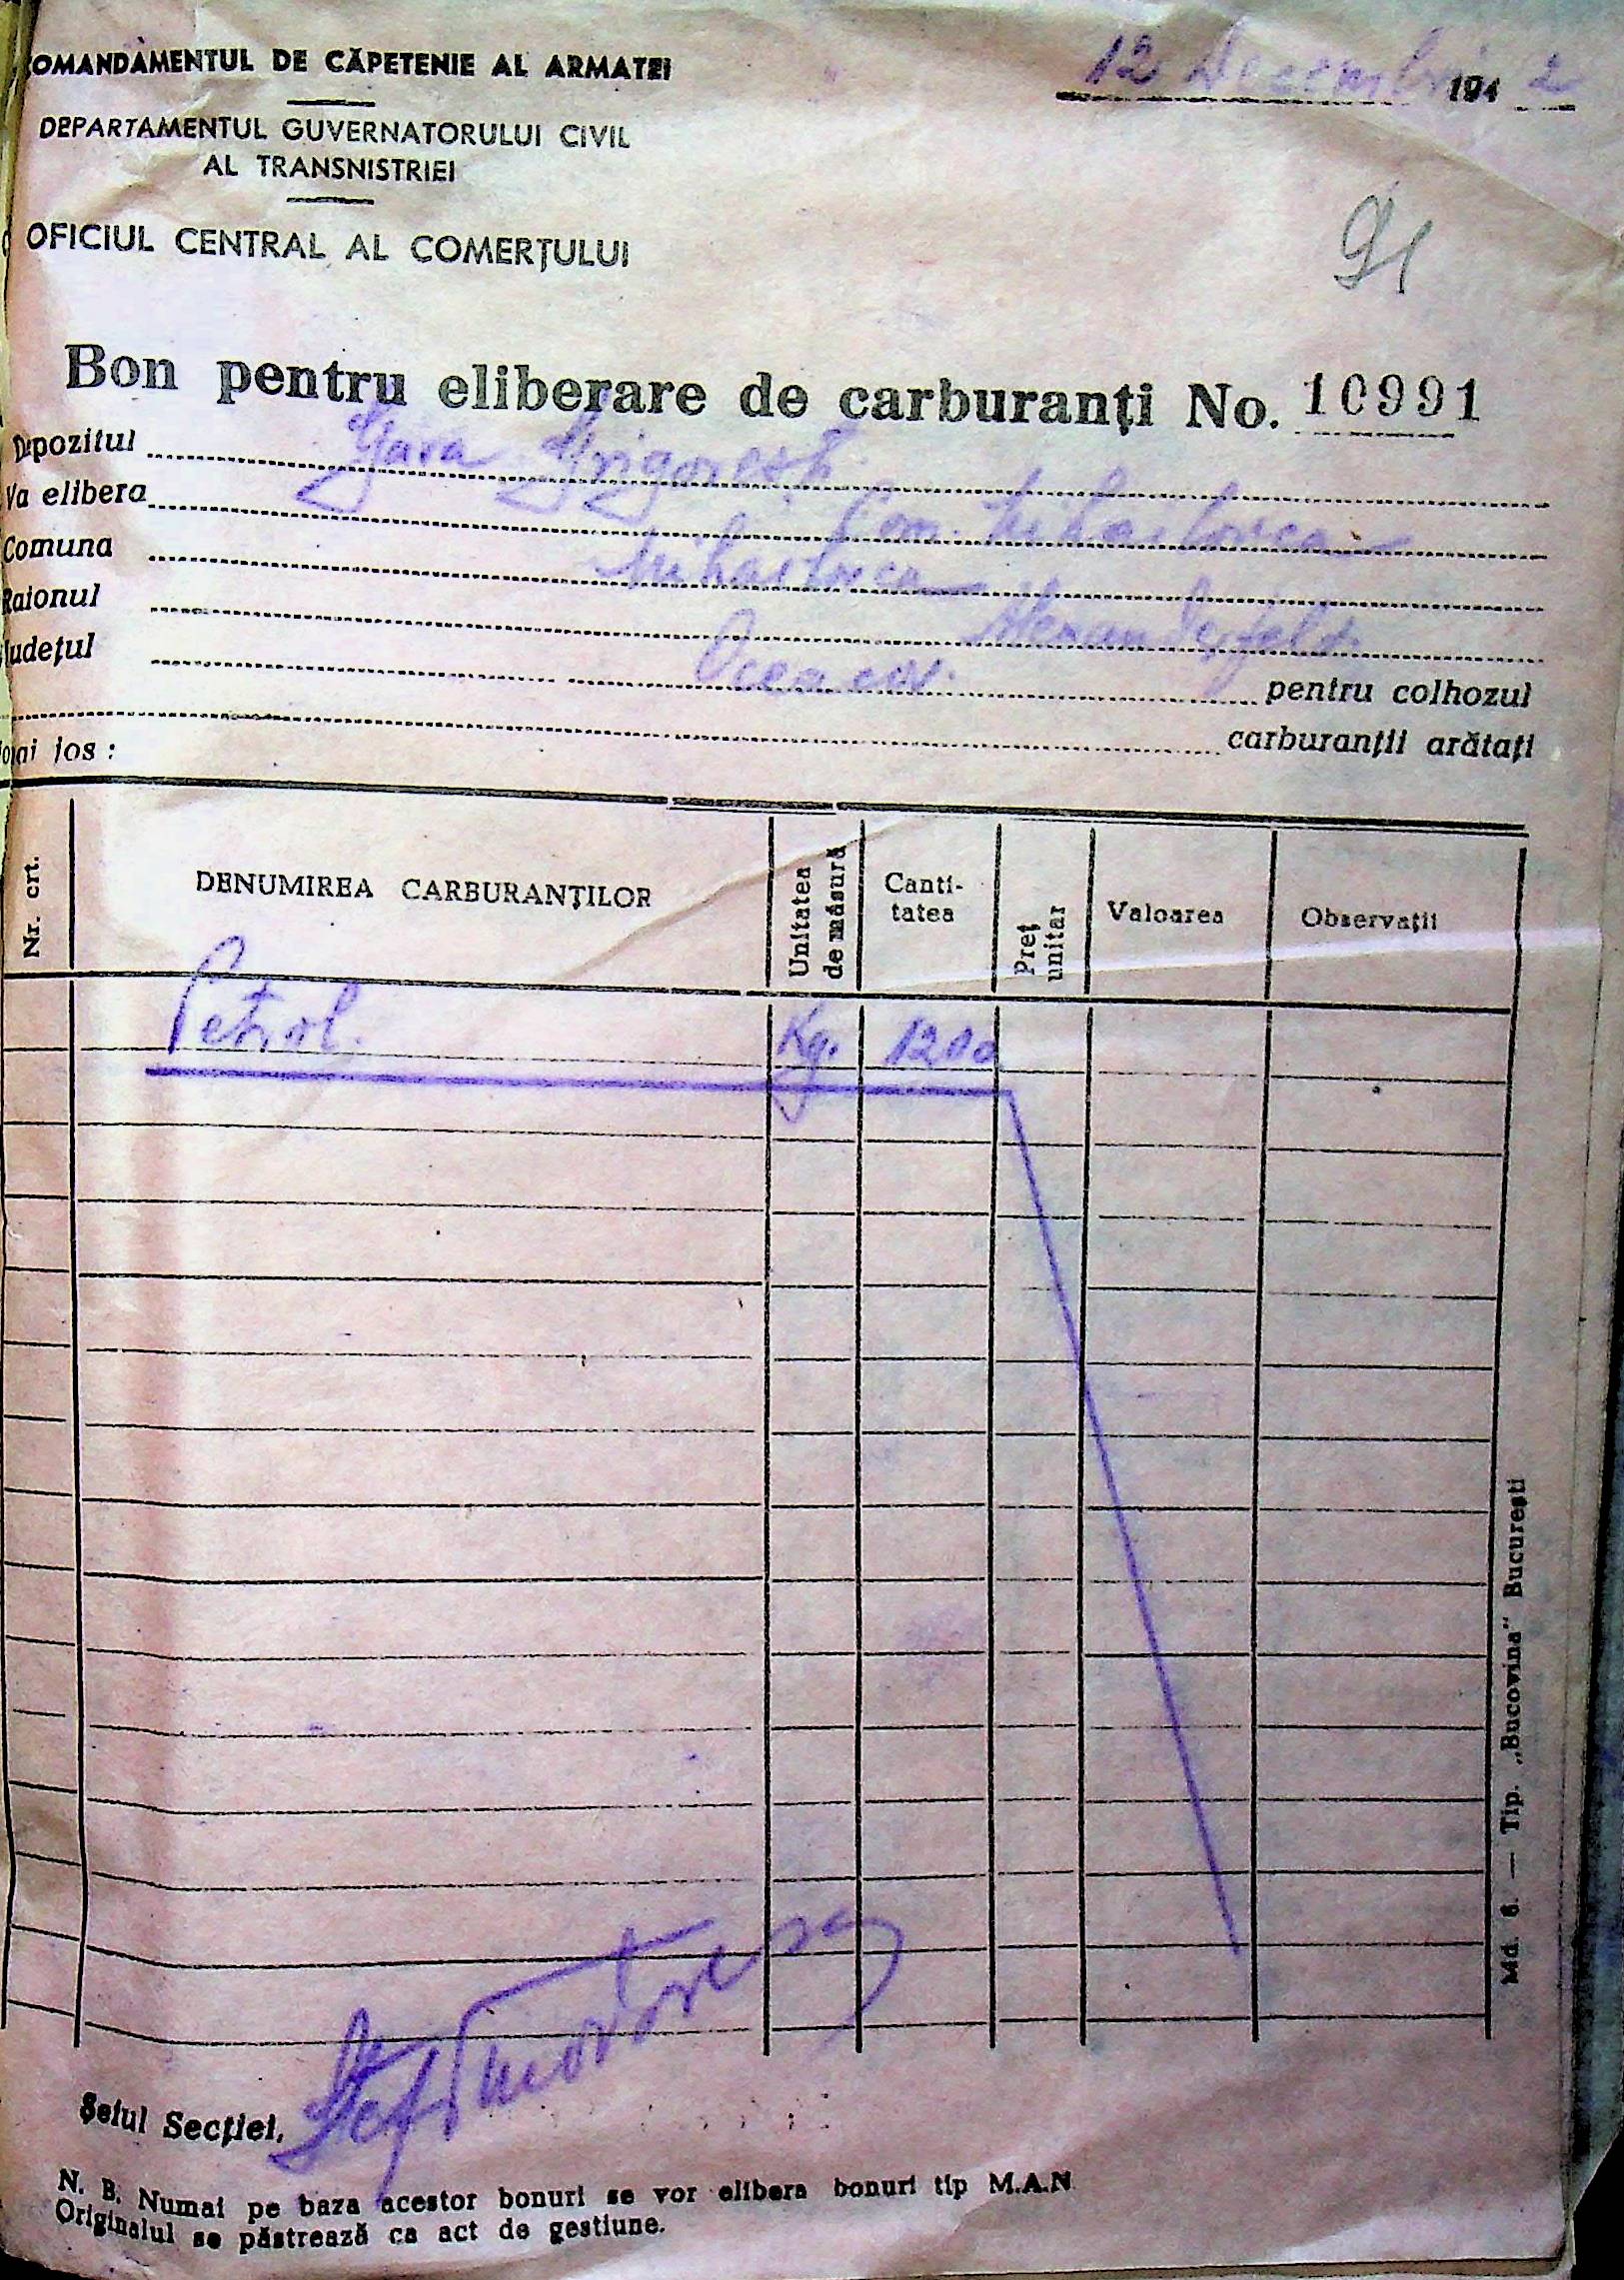 COMANDAMENTUL DE CĂPETENIE AL ARMATEI
12 Decembrie 1942
DEPARTAMENTUL GUVERNATORULUI CIVIL
AL TRANSNISTRIEI
OFICIUL CENTRAL AL COMERȚULUI
91
Bon pentru eliberare de carburanți No. 10991
Depozitul Gara Grigorești
Va elibera Com. Mihailovca
Comuna Mihailovca
Raionul Alexanderfeld
Județul Oceacov. pentru colhozul
carburanții arătați
mai jos :
Nr. crt. DENUMIREA CARBURANȚILOR Unitatea de măsură Canti-tatea Preț unitar Valoarea Observații
Petrol. Kg. 1200
Șeful Secției,
N. B. Numai pe baza acestor bonuri se vor elibera bonuri tip M.A.N
Originalul se păstrează ca act de gestiune.
Md. 6. — Tip. „Bucovina" București